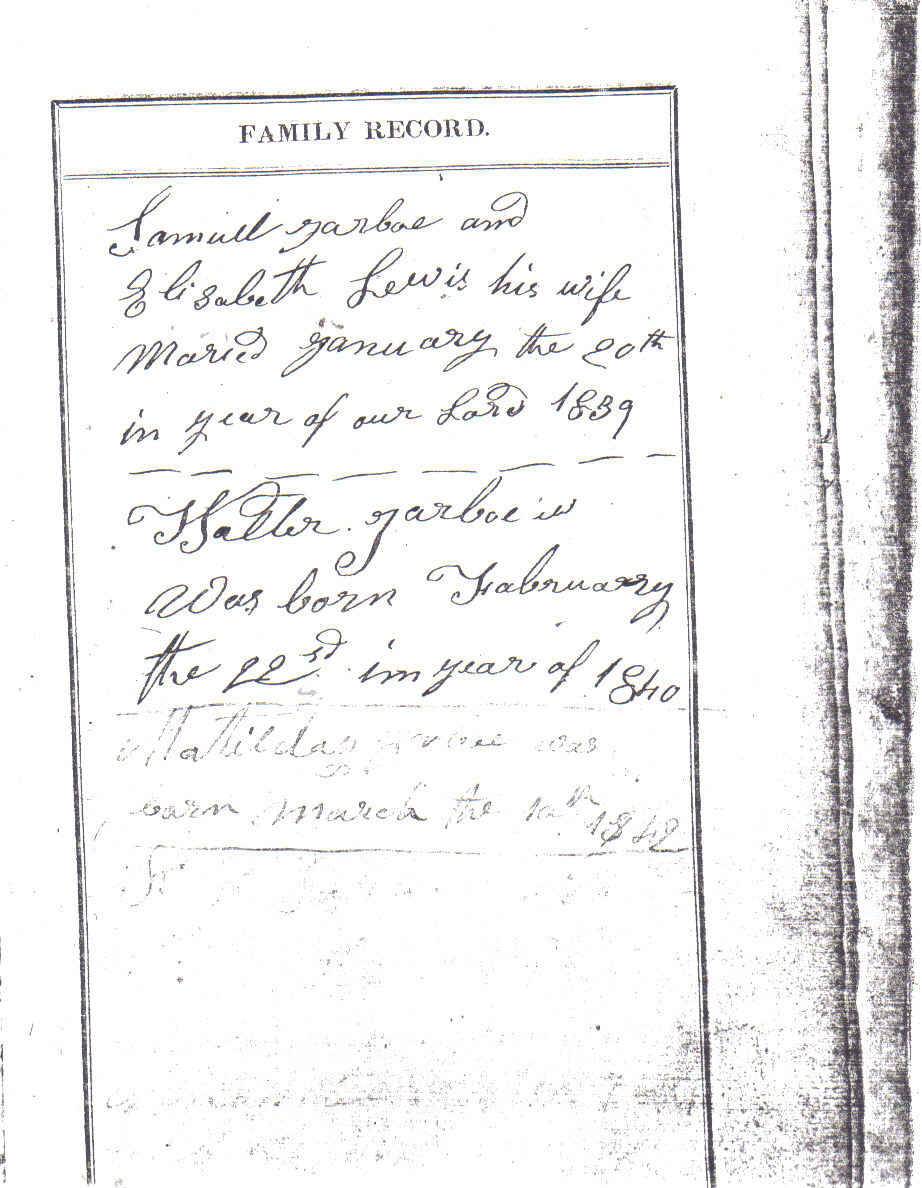 FAMILY RECORD.
Samuell Jarboe and
Elisabeth Lewis his wife
Maried January the 20th
in year of our Lord 1839
Walter Jarboe is
Was born Fabruarry
the 22sd im year of 1840
Matilday Jarboe was
born March the 10th 1842